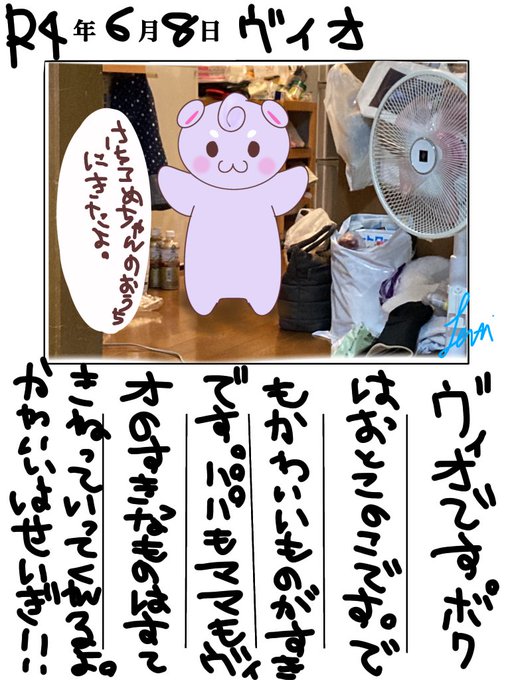 R4年6月8日 ヴィオ
さちこめちゃんのおうち
にきたよ。
ヴィオです。ボク
はおとこのこです。で
もかわいいものがすき
です。パパもママもヴィ
オのすきなものはすて
きねっていってくれるよ。
かわいいはせいぎ!!